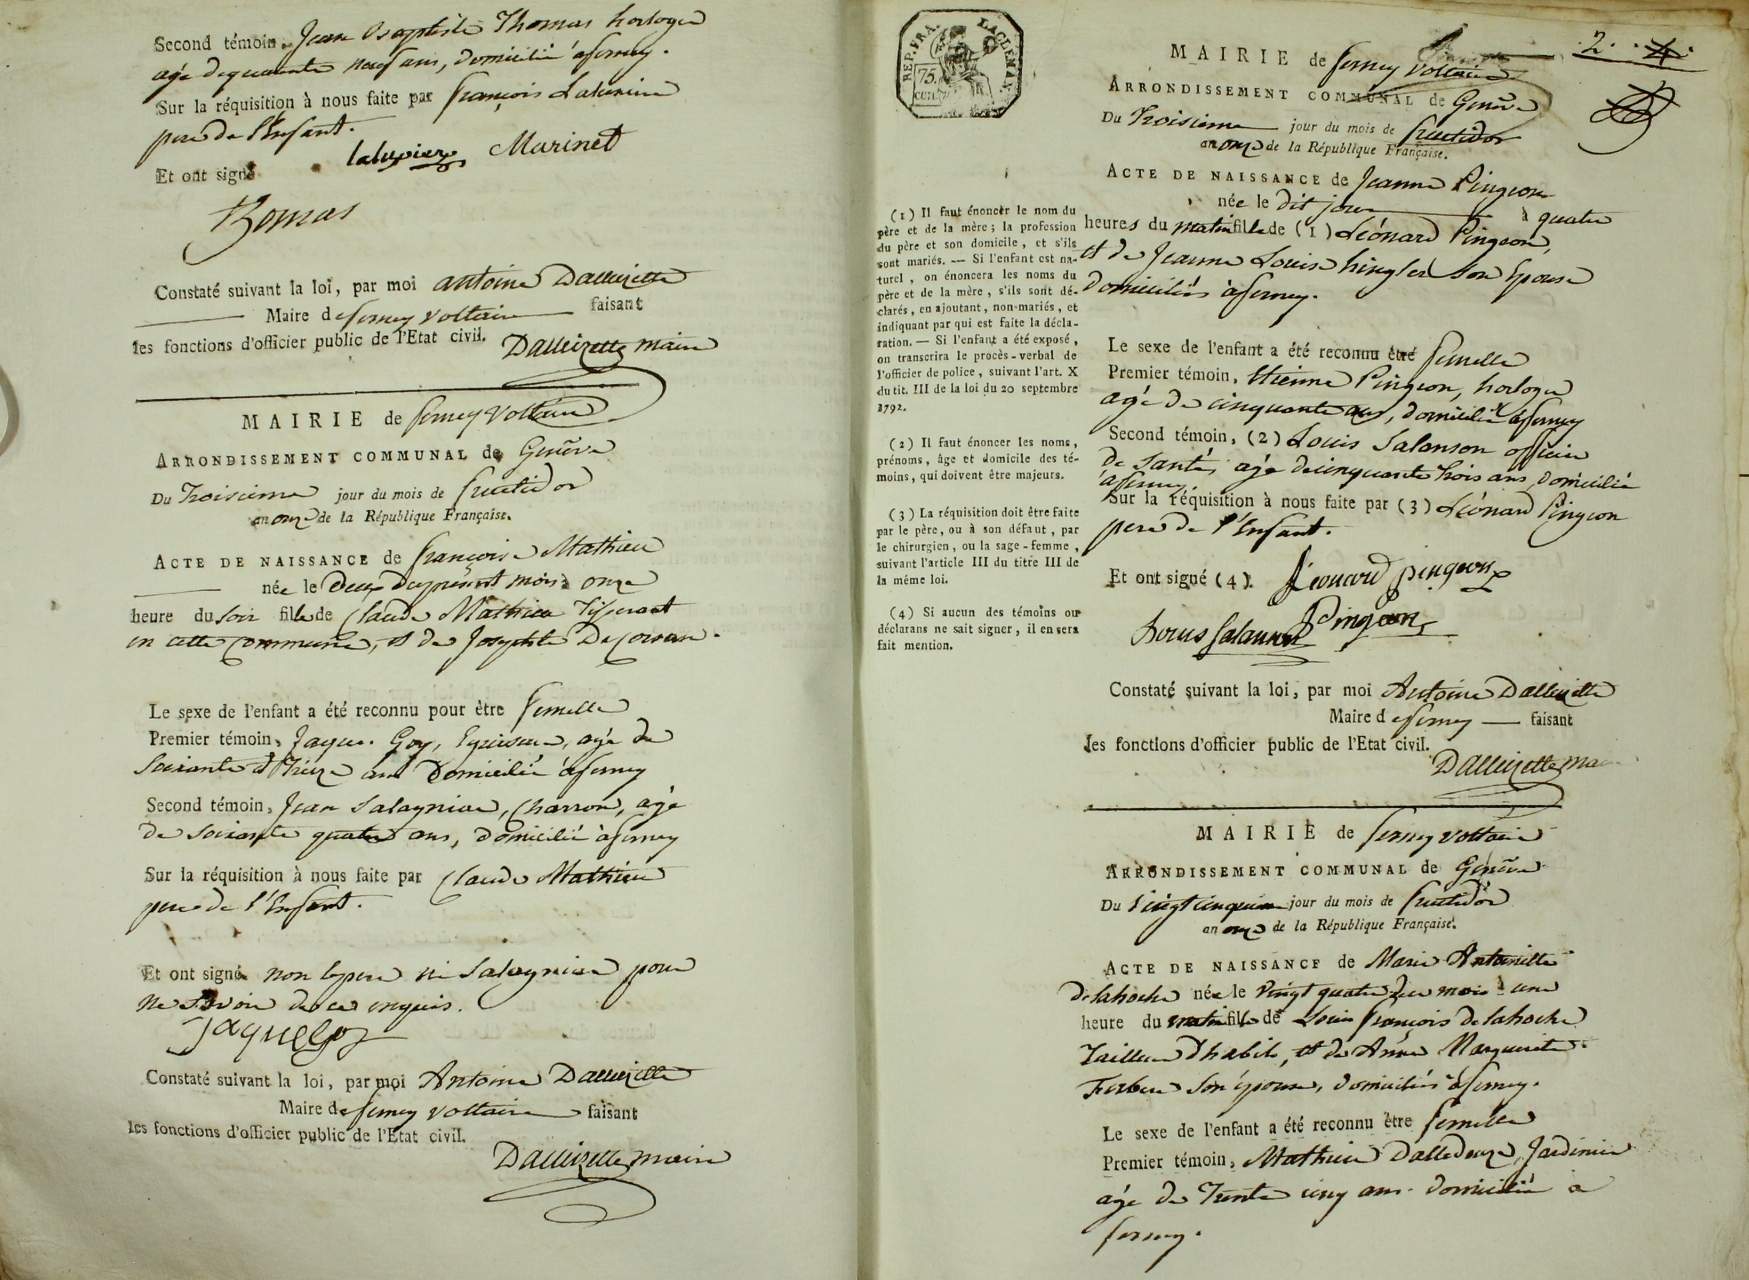 Second témoin, Jean Baptiste Thomas horloger
agé de quarante neuf ans, domicilié à ferney.
Sur la réquisition à nous faite par françois
pere de l'Enfant.
Et ont signé Marinet
Thomas
Constaté suivant la loi, par moi antoine Dallizette
Maire de ferney voltaire faisant
les fonctions d'officier public de l'Etat civil.
Dallizette maire
MAIRIE de ferney voltaire
ARRONDISSEMENT COMMUNAL de Genève
Du Troisieme jour du mois de fructidor
an onze de la République Française.
ACTE DE NAISSANCE de françoise Mathieu
née le Deux du présent mois à onze
heure du soir fille de Claude Mathieu Tisserant
en cette commune, et de Josephte
Le sexe de l'enfant a été reconnu pour être femelle
Premier témoin, Jaques Goy, agé de
soixante et treize ans Domicilié à ferney
Second témoin, Jean Salagnias, Charron, agé
de soixante quatre ans, domicilié à ferney
Sur la réquisition à nous faite par Claude Mathieu
pere de l'Enfant.
Et ont signé non le pere ni Salagnias pour
ne savoir de ce enquis.
Jaque Goy
Constaté suivant la loi, par moi Antoine Dallizette
Maire de ferney voltaire faisant
les fonctions d'officier public de l'Etat civil.
Dallizette maire
REP. FRA.
75.
CENT.
2. 4.
MAIRIE de ferney voltaire
ARRONDISSEMENT COMMUNAL de Genève
Du Troisieme jour du mois de fructidor
an onze de la République Française.
ACTE DE NAISSANCE de Jeanne Pingeon
née le dit jour à quatre
heures du matin fille de (1) Léonard Pingeon,
et de Jeanne Louise son Epouse
domiciliés à ferney.
Le sexe de l'enfant a été reconnu être femelle
Premier témoin, Etienne Pingeon, horloger
agé de cinquante ans, domicilié à ferney
Second témoin, (2) Louis Salanson officier
de santé, agé de cinquante trois ans, domicilié
à ferney
Sur la réquisition à nous faite par (3) Léonard Pingeon
pere de l'Enfant.
Et ont signé (4). Léonard pingeon
Louis Salanson Pingeon
Constaté suivant la loi, par moi Antoine Dallizette
Maire de ferney faisant
les fonctions d'officier public de l'Etat civil.
Dallizette maire
(1) Il faut énoncer le nom du
père et de la mère ; la profession
du père et son domicile, et s'ils
sont mariés. — Si l'enfant est na-
turel, on énoncera les noms du
père et de la mère, s'ils sont dé-
clarés, en ajoutant, non-mariés, et
indiquant par qui est faite la décla-
ration. — Si l'enfant a été exposé,
on transcrira le procès-verbal de
l'officier de police, suivant l'art. X
du tit. III de la loi du 20 septembre
1792.
(2) Il faut énoncer les noms,
prénoms, âge et domicile des té-
moins, qui doivent être majeurs.
(3) La réquisition doit être faite
par le père, ou à son défaut, par
le chirurgien, ou la sage-femme,
suivant l'article III du titre III de
la même loi.
(4) Si aucun des témoins ou
déclarans ne sait signer, il en sera
fait mention.
MAIRIE de ferney voltaire
ARRONDISSEMENT COMMUNAL de Genève
Du Vingt cinquieme jour du mois de fructidor
an onze de la République Française.
ACTE DE NAISSANCE de Marie Antoinette
Delahoche née le Vingt quatre du mois à une
heure du matin fille de Louis françois Delahoche
Tailleur d'habits, et de Anne Marguerite
son épouse, domiciliés à ferney.
Le sexe de l'enfant a été reconnu être femelle
Premier témoin, Mathieu Jardinier
agé de Trente cinq ans domicilié à
ferney.